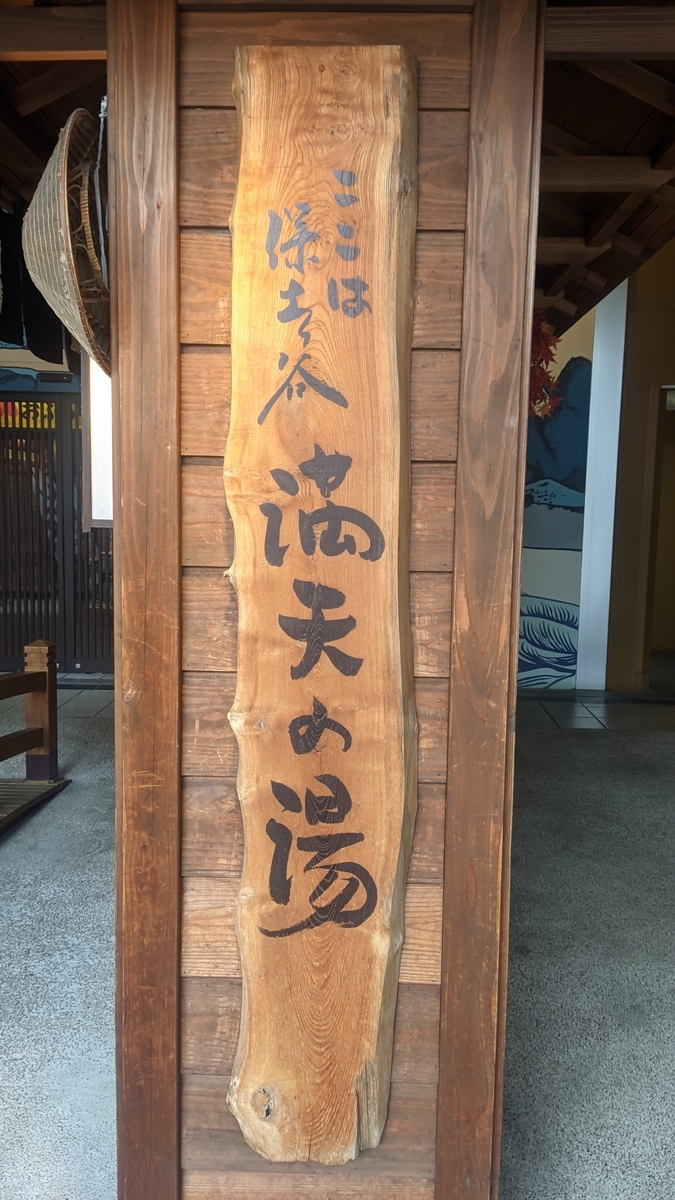 ここは
保土ヶ谷
満天の湯